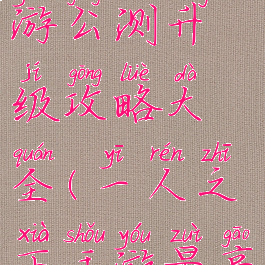 游公测升
jí gōng lüè dà
级攻略大
quán yī rén zhī
全(一人之
xià shǒu yóu zuì gāo
下手游最高